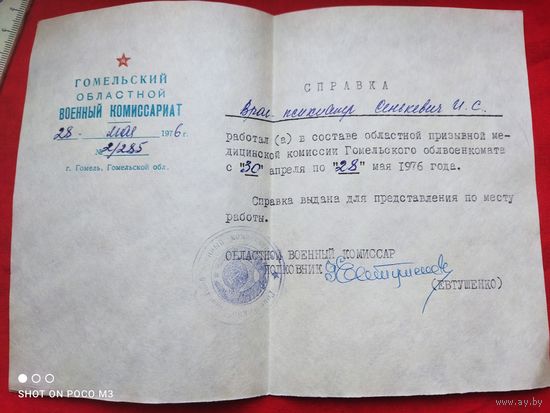 ГОМЕЛЬСКИЙ
ОБЛАСТНОЙ
ВОЕННЫЙ КОМИССАРИАТ
28 мая 1976 г.
№ 2/285
г. Гомель, Гомельской обл.
СПРАВКА
Врач-психиатр Сенкевич И.С.
работал (а) в составе областной призывной ме-
дицинской комиссии Гомельского облвоенкомата
с "30" апреля по "28" мая 1976 года.
Справка выдана для представления по месту
работы.
ОБЛАСТНОЙ ВОЕННЫЙ КОМИССАР
ПОЛКОВНИК
(ЕВТУШЕНКО)
SHOT ON POCO M3
www.ay.by